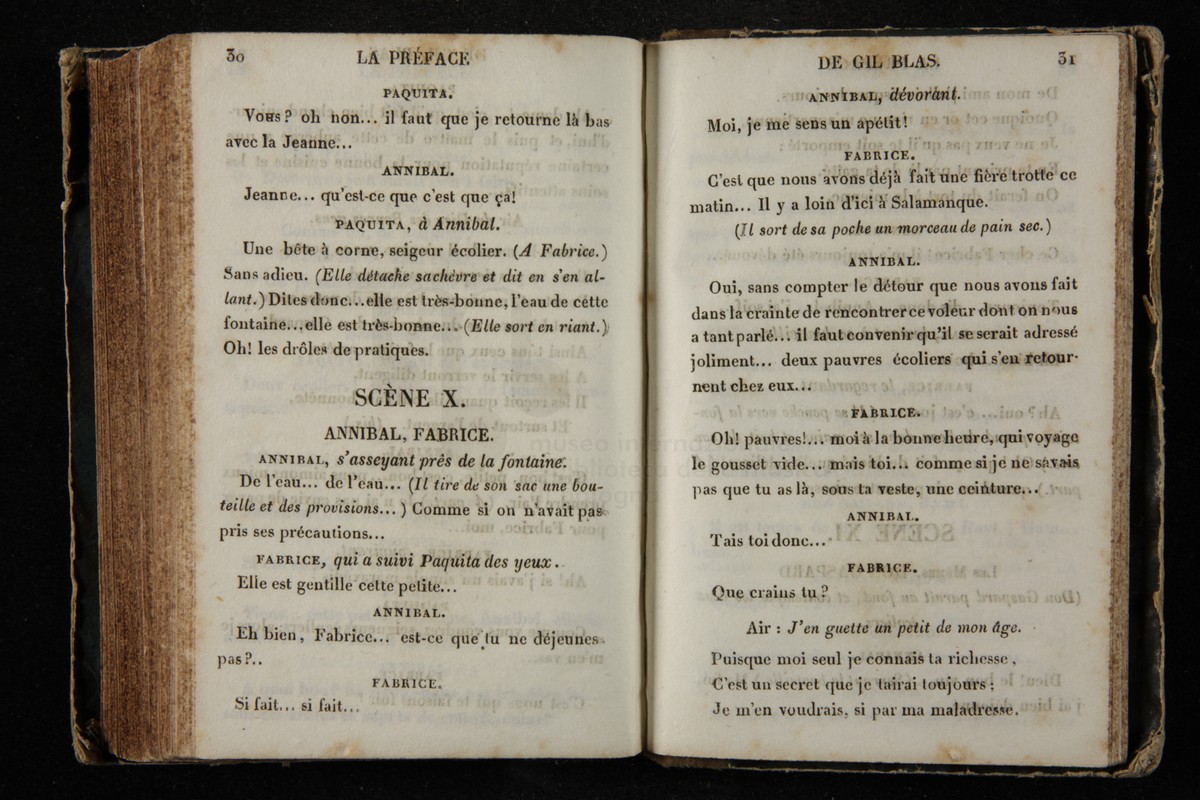 30
LA PRÉFACE
PAQUITA.
Vous? oh non... il faut que je retourne là bas
avec la Jeanne...
ANNIBAL.
Jeanne... qu'est-ce que c'est que ça!
PAQUITA, à Annibal.
Une bête à corne, seigneur écolier. (A Fabrice.)
Sans adieu. (Elle détache sachèvre et dit en s'en al-
lant.) Dites donc...elle est très-bonne, l'eau de cette
fontaine...elle est très-bonne... (Elle sort en riant.)
Oh! les drôles de pratiques.
SCÈNE X.
ANNIBAL, FABRICE.
ANNIBAL, s'asseyant près de la fontaine.
De l'eau... de l'eau... (Il tire de son sac une bou-
teille et des provisions... ) Comme si on n'avait pas
pris ses précautions...
FABRICE, qui a suivi Paquita des yeux.
Elle est gentille cette petite...
ANNIBAL.
Eh bien, Fabrice... est-ce que tu ne déjeunes
pas?..
FABRICE.
Si fait... si fait...
DE GIL BLAS.
31
ANNIBAL, dévorant.
Moi, je me sens un apétit!
FABRICE.
C'est que nous avons déjà fait une fière trotte ce
matin... Il y a loin d'ici à Salamanque.
(Il sort de sa poche un morceau de pain sec.)
ANNIBAL.
Oui, sans compter le détour que nous avons fait
dans la crainte de rencontrer ce voleur dont on nous
a tant parlé... il faut convenir qu'il se serait adressé
joliment... deux pauvres écoliers qui s'en retour-
nent chez eux...
FABRICE.
Oh! pauvres!... moi à la bonne heure, qui voyage
le gousset vide... mais toi... comme si je ne savais
pas que tu as là, sous ta veste, une ceinture...
ANNIBAL.
Tais toi donc...
FABRICE.
Que crains tu?
Air : J'en guette un petit de mon âge.
Puisque moi seul je connais ta richesse,
C'est un secret que je tairai toujours;
Je m'en voudrais, si par ma maladresse.